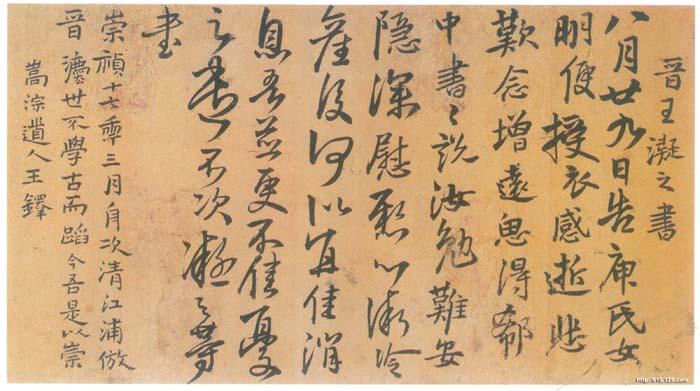 晉王凝之書
八月廿九日告庾氏女
明便授衣感逝悲
歎念增遠思得郗
中書〻說汝勉難安
隱深慰懸心漸冷
產後何似宜佳消
息吾並更不佳憂
之遣不次凝之等
書
崇禎十七年三月舟次清江浦倣
晉灋世不學古而蹈今吾是以崇
嵩淙遺人王鐸